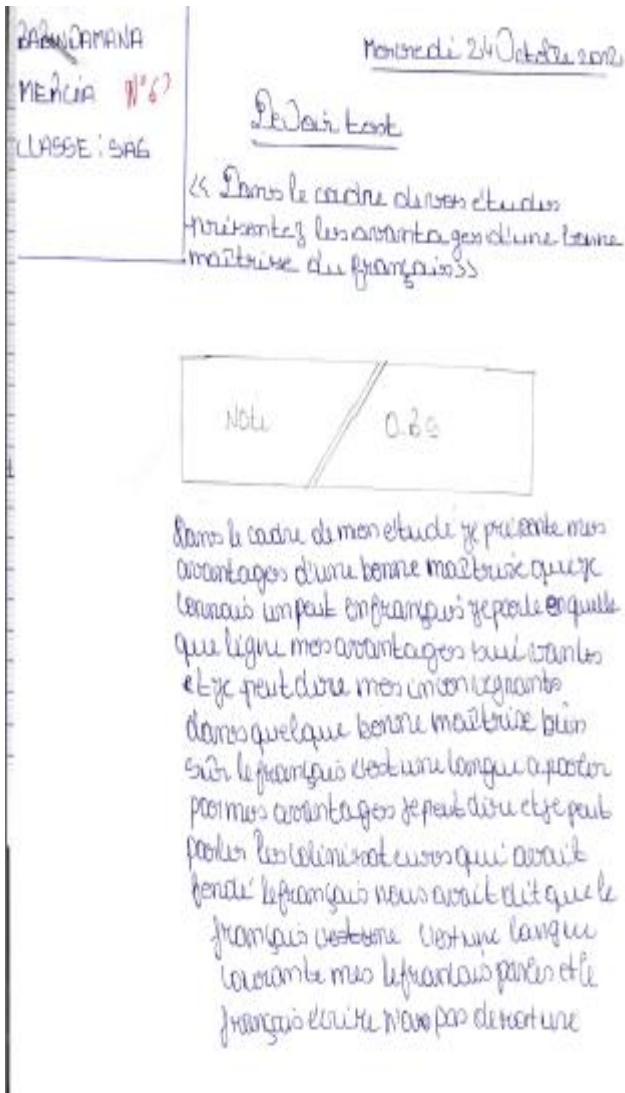 BABINDAMANA
MERCIA N°67
CLASSE : SAG
Mercredi 24 Octobre 2012
Devoir test
<< Dans le cadre de vos études
présentez les avantages d'une bonne
maîtrise du français >>
Note O.B.S
Dans le cadre de mon etude je présente mes
avantages d'une bonne maîtrise que je
connais un peut en français je parle en quelle
que ligne mes avantages suivantes
et je peut dire mes
dans quelque bonne maîtrise bien
sûr le français c'est une langue a parler
par mes avantages je peut dire et je peut
parler les qui avait
fondé le français nous avait dit que le
français c'est une langue
courante mes le francais parles et le
français écrire n'ava pas de une